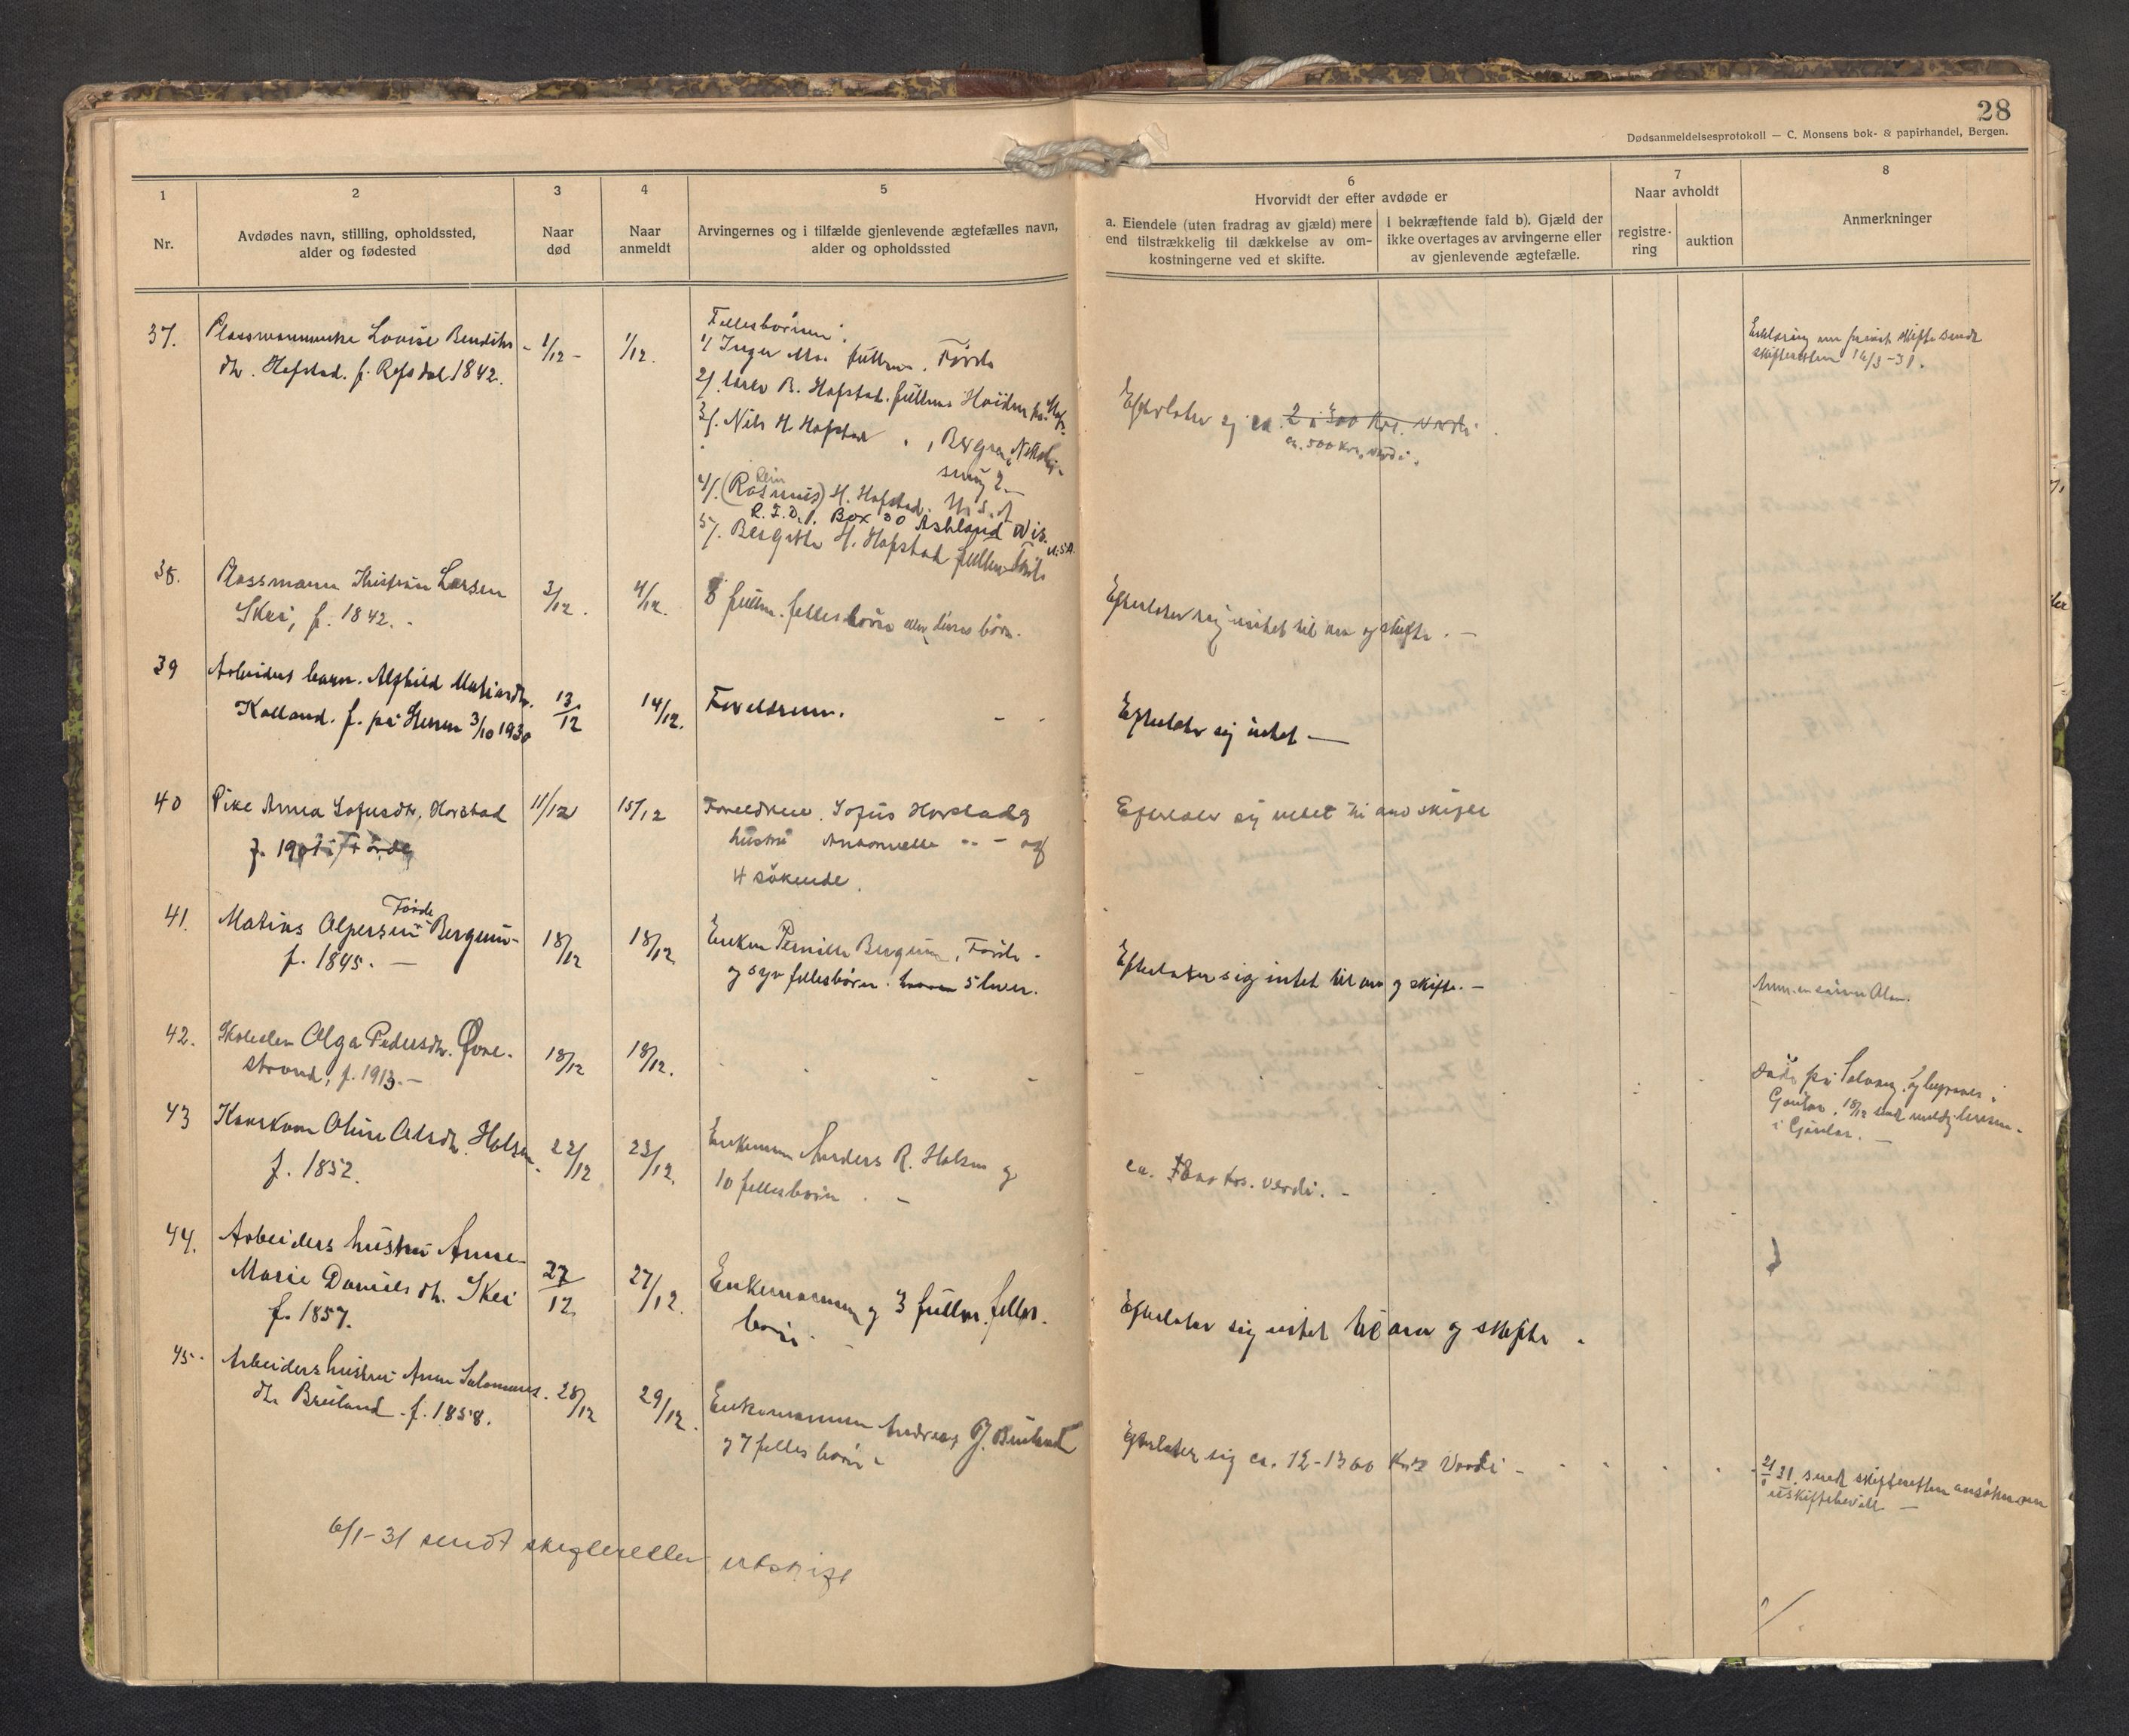 28
Dødsanmeldelsesprotokoll — C. Monsens bok- & papirhandel, Bergen.
1
2
3
4
5
6
7
8
Nr.
Avdødes navn, stilling, opholdssted,
alder og fødested
Naar
død
Naar
anmeldt
Arvingernes og i tilfælde gjenlevende ægtefælles navn,
alder og opholdssted
Hvorvidt der efter avdøde er
a. Eiendele (uten fradrag av gjæld) mere
end tilstrækkelig til dækkelse av om-
kostningerne ved et skifte.
I bekræftende fald b). Gjæld der
ikke overtages av arvingerne eller
av gjenlevende ægtefælle.
Naar avholdt
registre-
ring
auktion
Anmerkninger
37.
Plassmannenke Lovise Bendiks
dtr. Hafstad. f. Refsdal 1842.
1/12 -
1/12.
Fellesbørnene:
1/ Inger fullm. Førde
2/. B. Hafstad. fullm.
3/. Nils H. Hafstad , Bergen,
smug 2 -
4/. (Rasmus) H. Hafstad. U.S.A
R.F.D. 1. Box 30 Ashland Wis.
U.S.A.
5/. Bergitte H. Hafstad fullm.
Efterlater sig ca. 2 à 300 Krs. verdi.
ca. 500 Krs. verdi.
Erklæring om privat skifte sendt
skifteretten 16/3-31.
38.
Plassmann Kristian Larsen
Skei, f. 1842. -
3/12.
4/12.
8 fullm. fellesbørn eller deres børn.
Efterlater sig intet til arv og skifte. -
39
Arbeiders barn. Alfhild Matiasdtr.
Kalland. f. på Steen 3/10 1930
13/12
14/12.
Foreldrene.
Efterlater sig intet -
40
Pike Anna Sofusdtr. Horstad
f. 1901 i Førde
11/12
15/12
Foreldrene. Sofus Horstad og
hustru -"- og
4 søkende.
Efterlater sig intet til arv skifte
41.
Matias Alfersen Bergum -
Førde
f. 1895. -
18/12
18/12
Enken Pernille Bergum, Førde -
og syv fellesbørn.
Efterlater sig intet til arv og skifte. -
42.
Skoleelev Olga Pedersdtr. Øvre-
strand, f. 1913. -
18/12
18/12.
Døde på og begraves i
Gaular. 18/12 send
i Gaular. -
43
Kaarkone Oline Olsdtr. Holsen
f. 1852.
22/12
23/12.
Enkemann Anders R. Holsen og
10 fellesbørn. -
ca. Krs. verdi. -
44.
Arbeiders hustru Anne
Marie Daniels dtr. Skei
f. 1857.
27/12
27/12.
Enkemannen og 3 fullm. felles.
børn. -
Efterlater sig intet til arv og skifte.
45.
Arbeiders hustru Anne Salomons.
dtr. Breiland. f. 1858.
28/12
29/12.
Enkemannen Andreas J. Breiland
og 7 felles børn -
Efterlater sig ca. 12-1300 Krs Verdi -
31. sendt skifteretten ansøkn. om
uskiftebevill. -
6/1-31 sendt skifteretten utskrift